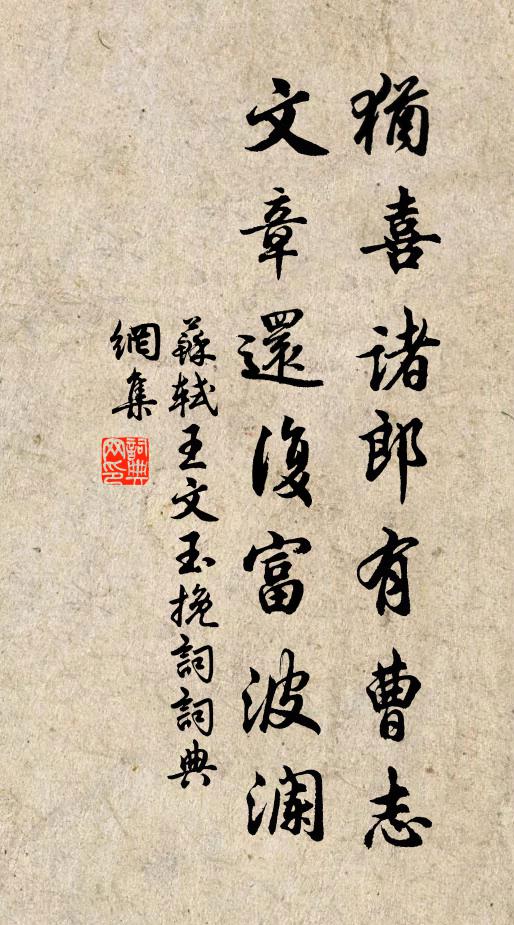 猶喜諸郎有曹志
文章還復富波瀾
蘇軾王文玉挽詞詞典
網集
詞典
网印